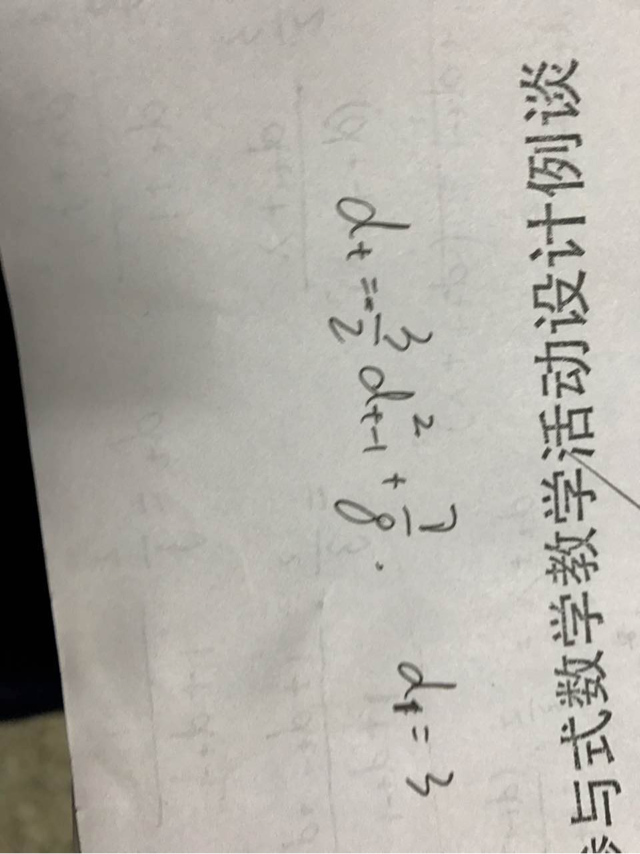 参与式数学教学活动设计例谈
d_t = -\frac{3}{2} d_{t-1}^2 + \frac{7}{8}. d_t = 3